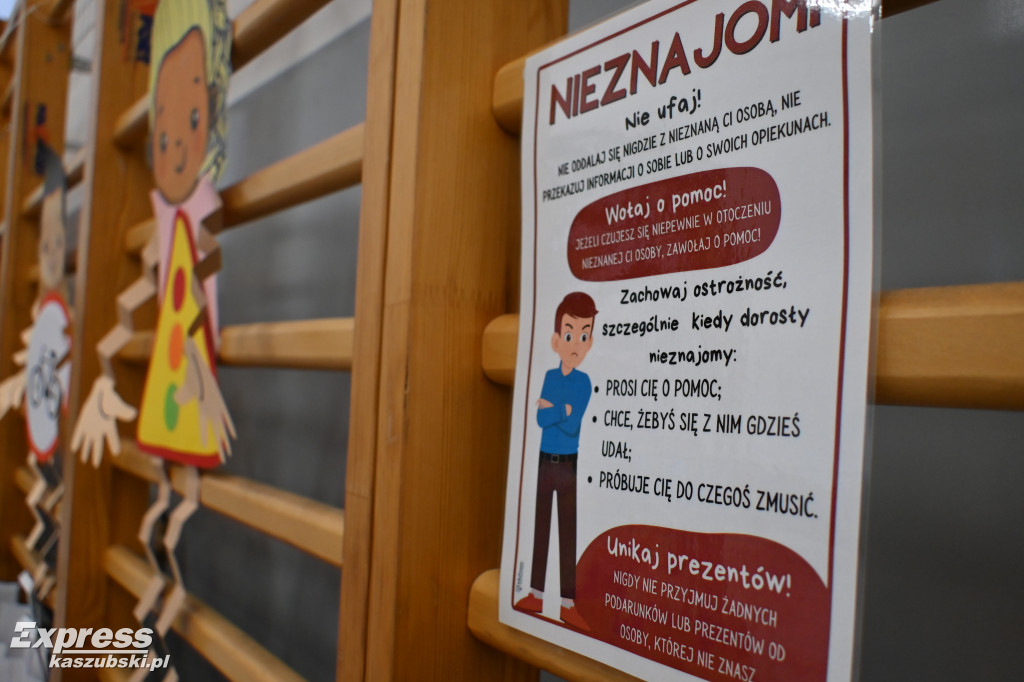 NIEZNAJOMI
Nie ufaj!
NIE ODDALAJ SIĘ NIGDZIE Z NIEZNANĄ CI OSOBĄ, NIE
PRZEKAZUJ INFORMACJI O SOBIE LUB O SWOICH OPIEKUNACH.
Wołaj o pomoc!
JEŻELI CZUJESZ SIĘ NIEPEWNIE W OTOCZENIU
NIEZNANEJ CI OSOBY, ZAWOŁAJ O POMOC!
Zachowaj ostrożność,
szczególnie kiedy dorosły
nieznajomy:
• PROSI CIĘ O POMOC;
• CHCE, ŻEBYŚ SIĘ Z NIM GDZIEŚ
UDAŁ;
• PRÓBUJE CIĘ DO CZEGOŚ ZMUSIĆ.
Unikaj prezentów!
NIGDY NIE PRZYJMUJ ŻADNYCH
PODARUNKÓW LUB PREZENTÓW OD
OSOBY, KTÓREJ NIE ZNASZ
Express
kaszubski.pl